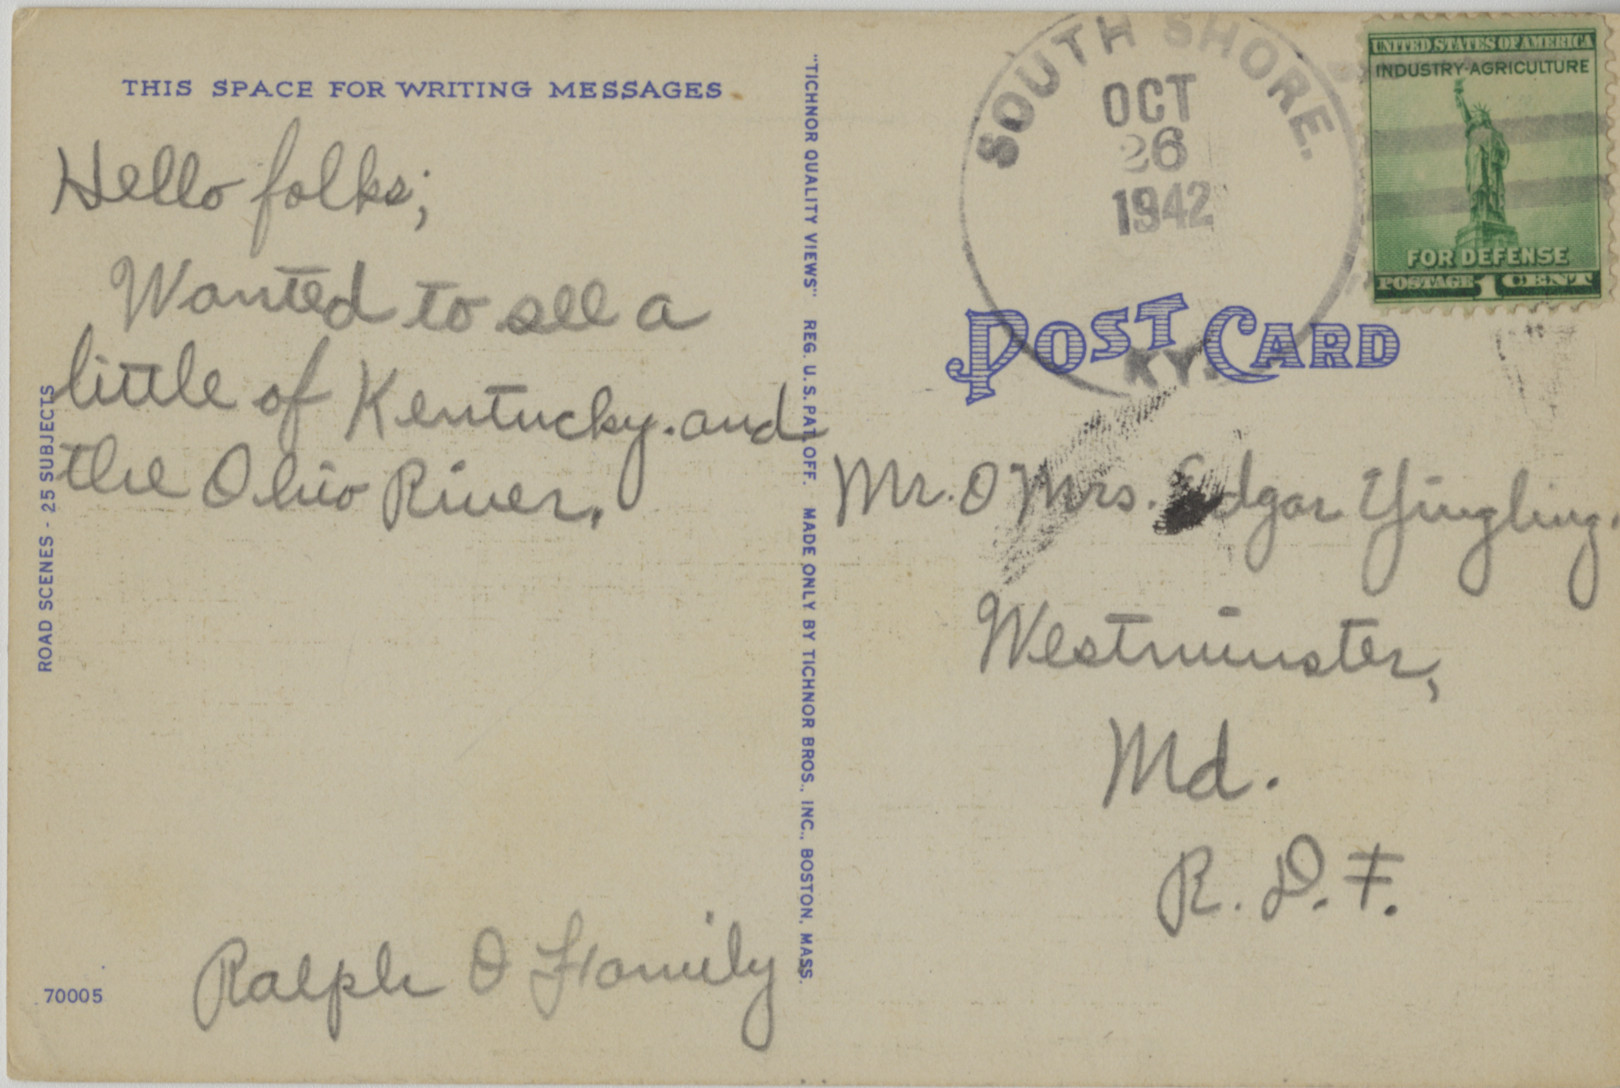 THIS SPACE FOR WRITING MESSAGES
Hello folks;
Wanted to see a
little of Kentucky. and
the Ohio River.
Ralph & Family
ROAD SCENES - 25 SUBJECTS
70005
"TICHNOR QUALITY VIEWS" REG. U.S. PAT. OFF. MADE ONLY BY TICHNOR BROS., INC., BOSTON, MASS.
SOUTH SHORE.
OCT
26
1942
KY.
UNITED STATES OF AMERICA
INDUSTRY-AGRICULTURE
FOR DEFENSE
POSTAGE 1 CENT
POST CARD
Mr. & Mrs. Edgar Yingling.
Westminster,
Md.
R. D. F.